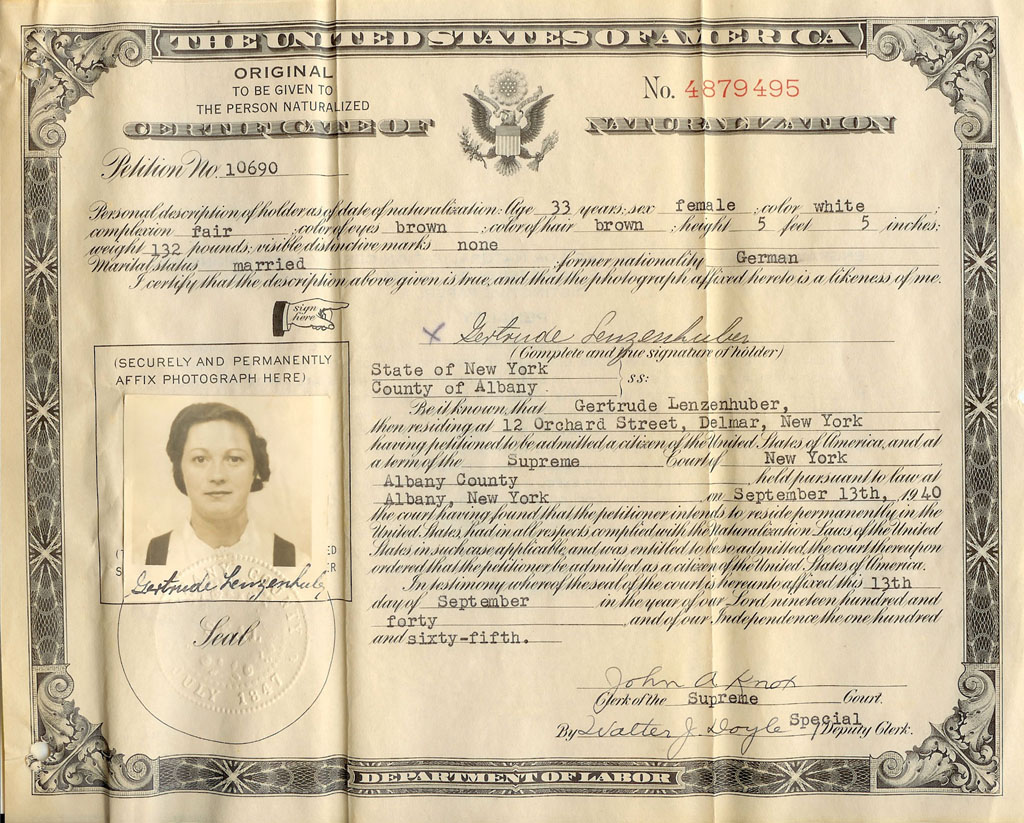 THE UNITED STATES OF AMERICA
ORIGINAL
TO BE GIVEN TO
THE PERSON NATURALIZED
No. 4879495
CERTIFICATE OF NATURALIZATION
Petition No. 10690
Personal description of holder as of date of naturalization: Age 33 years; sex female; color white;
complexion fair; color of eyes brown; color of hair brown; height 5 feet 5 inches;
weight 132 pounds; visible distinctive marks none
Marital status married; former nationality German
I certify that the description above given is true, and that the photograph affixed hereto is a likeness of me.
sign
here
X Gertrude Lenzenhuber
(Complete and true signature of holder)
(SECURELY AND PERMANENTLY
AFFIX PHOTOGRAPH HERE)
Gertrude Lenzenhuber
Seal
JULY 1847
State of New York
County of Albany } ss:
Be it known, that Gertrude Lenzenhuber,
then residing at 12 Orchard Street, Delmar, New York
having petitioned to be admitted a citizen of the United States of America, and at
a term of the Supreme Court of New York
Albany County held pursuant to law at
Albany, New York on September 13th, 1940
the court having found that the petitioner intends to reside permanently in the
United States, had in all respects complied with the Naturalization Laws of the United
States in such case applicable, and was entitled to be so admitted, the court thereupon
ordered that the petitioner be admitted as a citizen of the United States of America.
In testimony whereof the seal of the court is hereunto affixed this 13th
day of September in the year of our Lord nineteen hundred and
forty, and of our Independence the one hundred
and sixty-fifth.
John A Knox
Clerk of the Supreme Court.
By Walter J Doyle Special Deputy Clerk.
DEPARTMENT OF LABOR